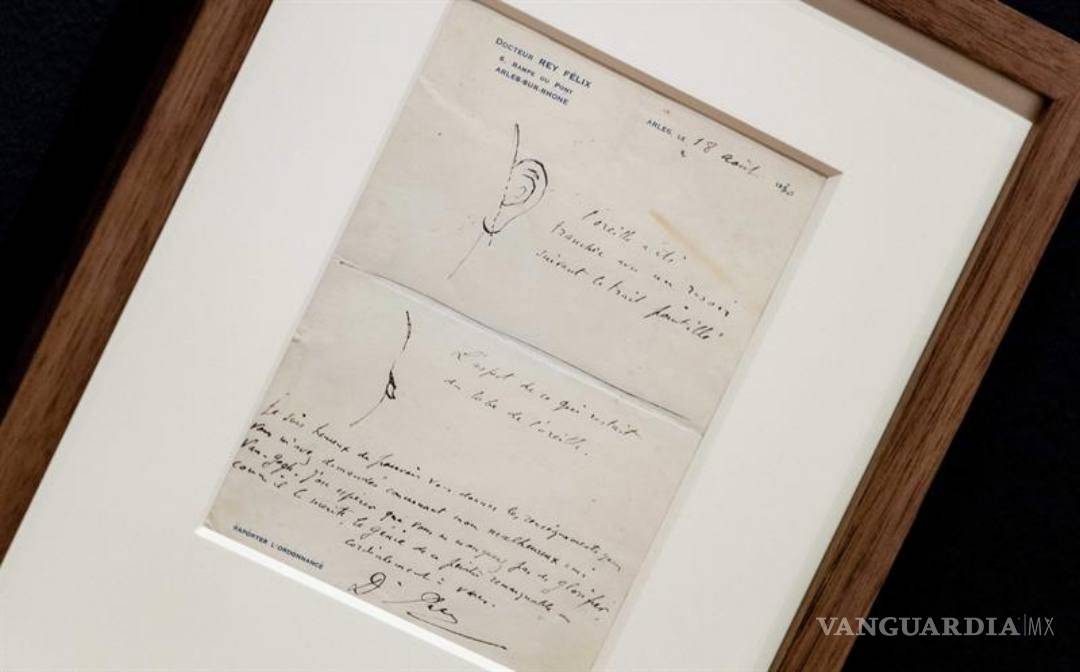 DOCTEUR REY FÉLIX
6, RAMPE DU PONT
ARLES-SUR-RHONE
ARLES, LE 18 août 1930
L'oreille a été
tranchée avec un rasoir
suivant le trait pointillé
L'aspect de ce qui restait
du lobe de l'oreille.
Je suis heureux de pouvoir vous donner les renseignements que
vous m'avez demandés concernant mon malheureux ami
Van-Gogh. J'ose espérer que vous ne manquerez pas de glorifier
comme il le mérite, le génie de ce peintre remarquable
cordialement à vous.
Dr Rey
RAPPORTER L'ORDONNANCE
VANGUARDIA|MX